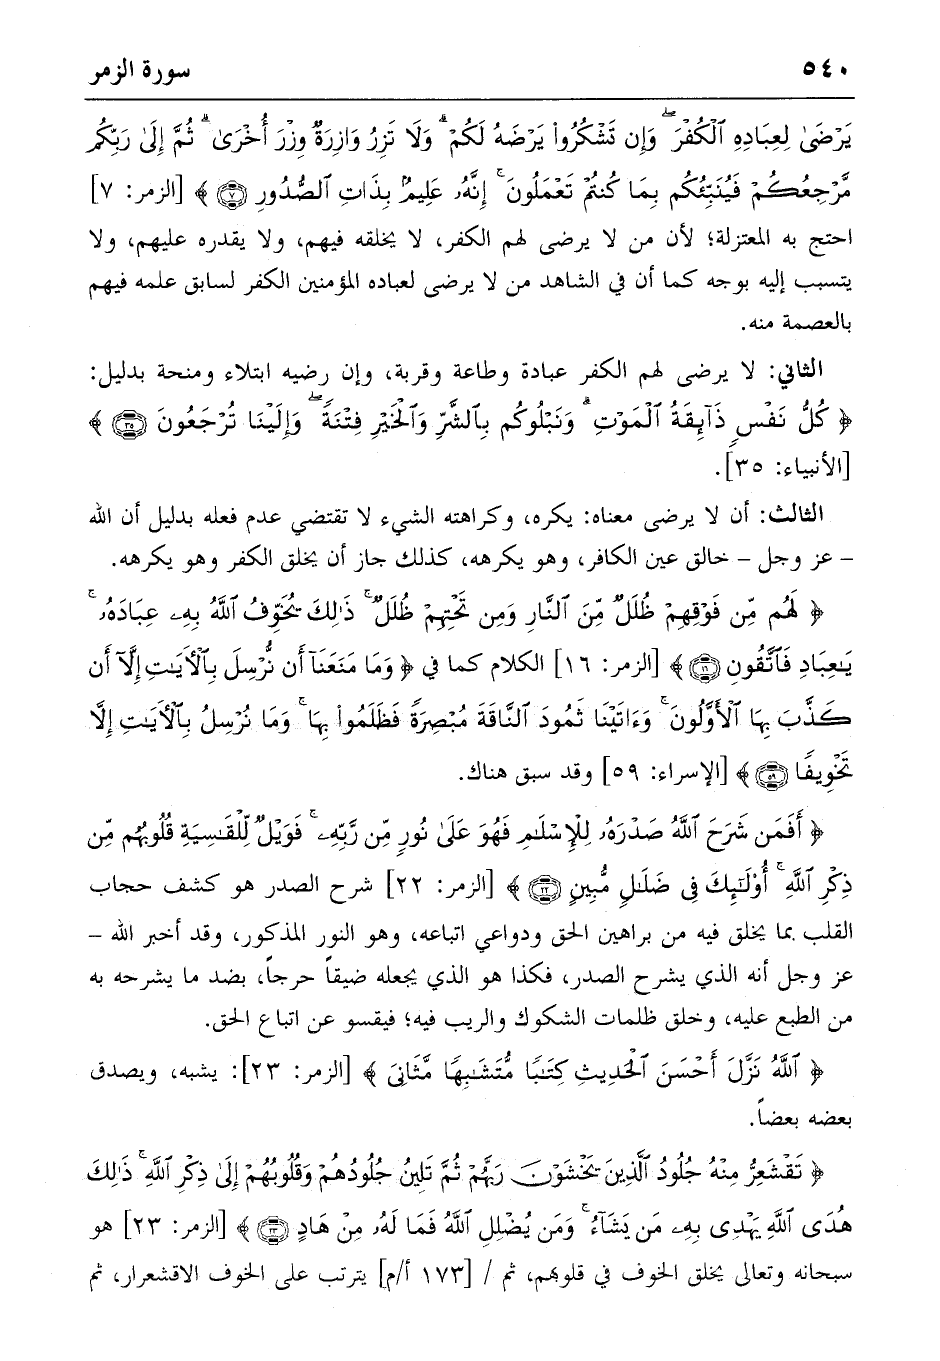 ٥٤٠ سورة الزمر
يَرْضَىٰ لِعِبَادِهِ ٱلْكُفْرَ ۖ وَإِن تَشْكُرُوا۟ يَرْضَهُ لَكُمْ ۗ وَلَا تَزِرُ وَازِرَةٌ وِزْرَ أُخْرَىٰ ۗ ثُمَّ إِلَىٰ رَبِّكُم
مَّرْجِعُكُمْ فَيُنَبِّئُكُم بِمَا كُنتُمْ تَعْمَلُونَ ۚ إِنَّهُۥ عَلِيمٌۢ بِذَاتِ ٱلصُّدُورِ ٧ ﴾ [الزمر: ٧]
احتج به المعتزلة؛ لأن من لا يرضى لهم الكفر، لا يخلقه فيهم، ولا يقدره عليهم، ولا
يتسبب إليه بوجه كما أن في الشاهد من لا يرضى لعباده المؤمنين الكفر لسابق علمه فيهم
بالعصمة منه.
الثاني: لا يرضى لهم الكفر عبادة وطاعة وقربة، وإن رضيه ابتلاء ومنحة بدليل:
﴿ كُلُّ نَفْسٍ ذَآئِقَةُ ٱلْمَوْتِ ۗ وَنَبْلُوكُم بِٱلشَّرِّ وَٱلْخَيْرِ فِتْنَةً ۖ وَإِلَيْنَا تُرْجَعُونَ ٣٥ ﴾
[الأنبياء: ٣٥].
الثالث: أن لا يرضى معناه: يكره، وكراهته الشيء لا تقتضي عدم فعله بدليل أن الله
– عز وجل – خالق عين الكافر، وهو يكرهه، كذلك جاز أن يخلق الكفر وهو يكرهه.
﴿ لَهُم مِّن فَوْقِهِمْ ظُلَلٌ مِّنَ ٱلنَّارِ وَمِن تَحْتِهِمْ ظُلَلٌ ۚ ذَٰلِكَ يُخَوِّفُ ٱللَّهُ بِهِۦ عِبَادَهُۥ ۚ
يَٰعِبَادِ فَٱتَّقُونِ ١٦ ﴾ [الزمر: ١٦] الكلام كما في ﴿ وَمَا مَنَعَنَآ أَن نُّرْسِلَ بِٱلْأَيَٰتِ إِلَّآ أَن
كَذَّبَ بِهَا ٱلْأَوَّلُونَ ۚ وَءَاتَيْنَا ثَمُودَ ٱلنَّاقَةَ مُبْصِرَةً فَظَلَمُوا۟ بِهَا ۚ وَمَا نُرْسِلُ بِٱلْأَيَٰتِ إِلَّا
تَخْوِيفًا ٥٩ ﴾ [الإسراء: ٥٩] وقد سبق هناك.
﴿ أَفَمَن شَرَحَ ٱللَّهُ صَدْرَهُۥ لِلْإِسْلَٰمِ فَهُوَ عَلَىٰ نُورٍ مِّن رَّبِّهِۦ ۚ فَوَيْلٌ لِّلْقَٰسِيَةِ قُلُوبُهُم مِّن
ذِكْرِ ٱللَّهِ ۚ أُو۟لَٰٓئِكَ فِى ضَلَٰلٍ مُّبِينٍ ٢٢ ﴾ [الزمر: ٢٢] شرح الصدر هو كشف حجاب
القلب بما يخلق فيه من براهين الحق ودواعي اتباعه، وهو النور المذكور، وقد أخبر الله –
عز وجل أنه الذي يشرح الصدر، فكذا هو الذي يجعله ضيقاً حرجاً، بضد ما يشرحه به
من الطبع عليه، وخلق ظلمات الشكوك والريب فيه؛ فيقسو عن اتباع الحق.
﴿ ٱللَّهُ نَزَّلَ أَحْسَنَ ٱلْحَدِيثِ كِتَٰبًا مُّتَشَٰبِهًا مَّثَانِىَ ﴾ [الزمر: ٢٣]: يشبه، ويصدق
بعضه بعضاً.
﴿ تَقْشَعِرُّ مِنْهُ جُلُودُ ٱلَّذِينَ يَخْشَوْنَ رَبَّهُمْ ثُمَّ تَلِينُ جُلُودُهُمْ وَقُلُوبُهُمْ إِلَىٰ ذِكْرِ ٱللَّهِ ۚ ذَٰلِكَ
هُدَى ٱللَّهِ يَهْدِى بِهِۦ مَن يَشَآءُ ۚ وَمَن يُضْلِلِ ٱللَّهُ فَمَا لَهُۥ مِنْ هَادٍ ٢٣ ﴾ [الزمر: ٢٣] هو
سبحانه وتعالى يخلق الخوف في قلوبهم، ثم / [١٧٣ أ/م] يترتب على الخوف الاقشعرار، ثم